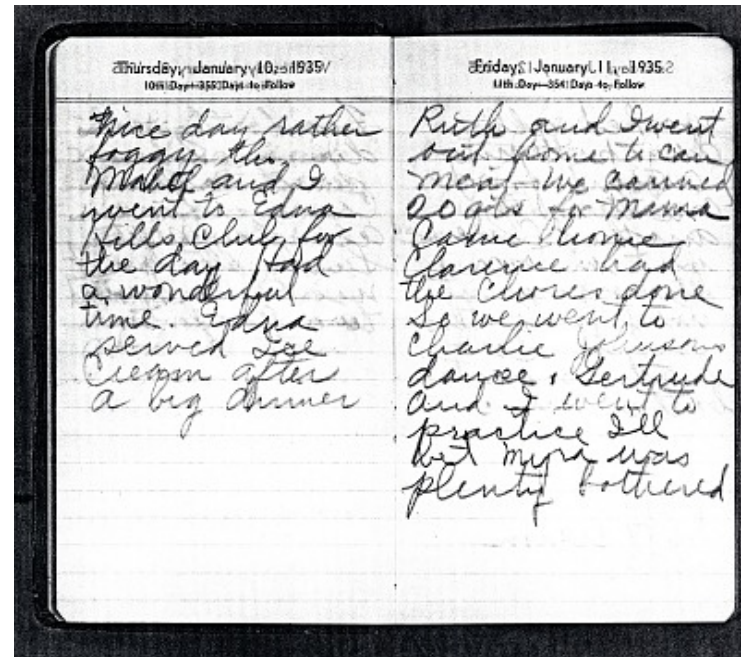 Thursday, January 10, 1935
10th Day—355 Days to Follow
Nice day rather
foggy tho
Mabel and I
went to Edna
Hills Club for
the day. Had
a wonderful
time. Edna
served Ice
Cream after
a big dinner
Friday, January 11, 1935
11th Day—354 Days to Follow
Ruth and I went
out home to can
meat. We canned
20 qts for Mama
Came home
Clarence had
the Chores done
So we went to
Charlie Johnsons
dance. Gertrude
and I went to
practice I'll
bet Myra was
plenty bothered